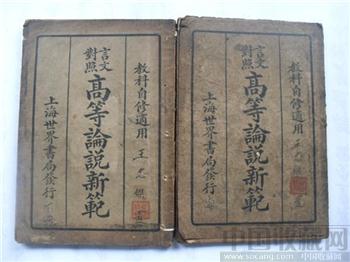 教科自修適用
言文對照
高等論説新範
上海世界書局發行
教科自修適用
言文對照
高等論説新範
上海世界書局發行
中国收藏网
www.socang.com 中国收藏网